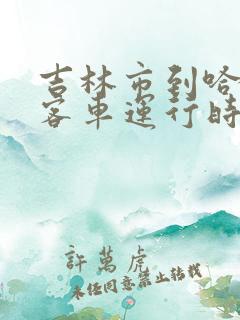 吉林市到哈
客车运行时
許萬虎
未经同意禁止转载